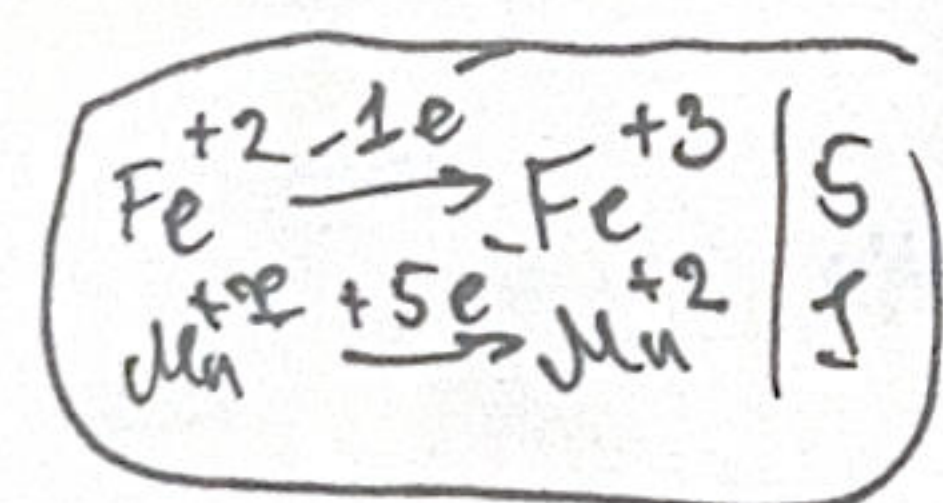 Fe⁺² -1e → Fe⁺³ | 5
Mn⁺⁷ +5e → Mn⁺² | 1